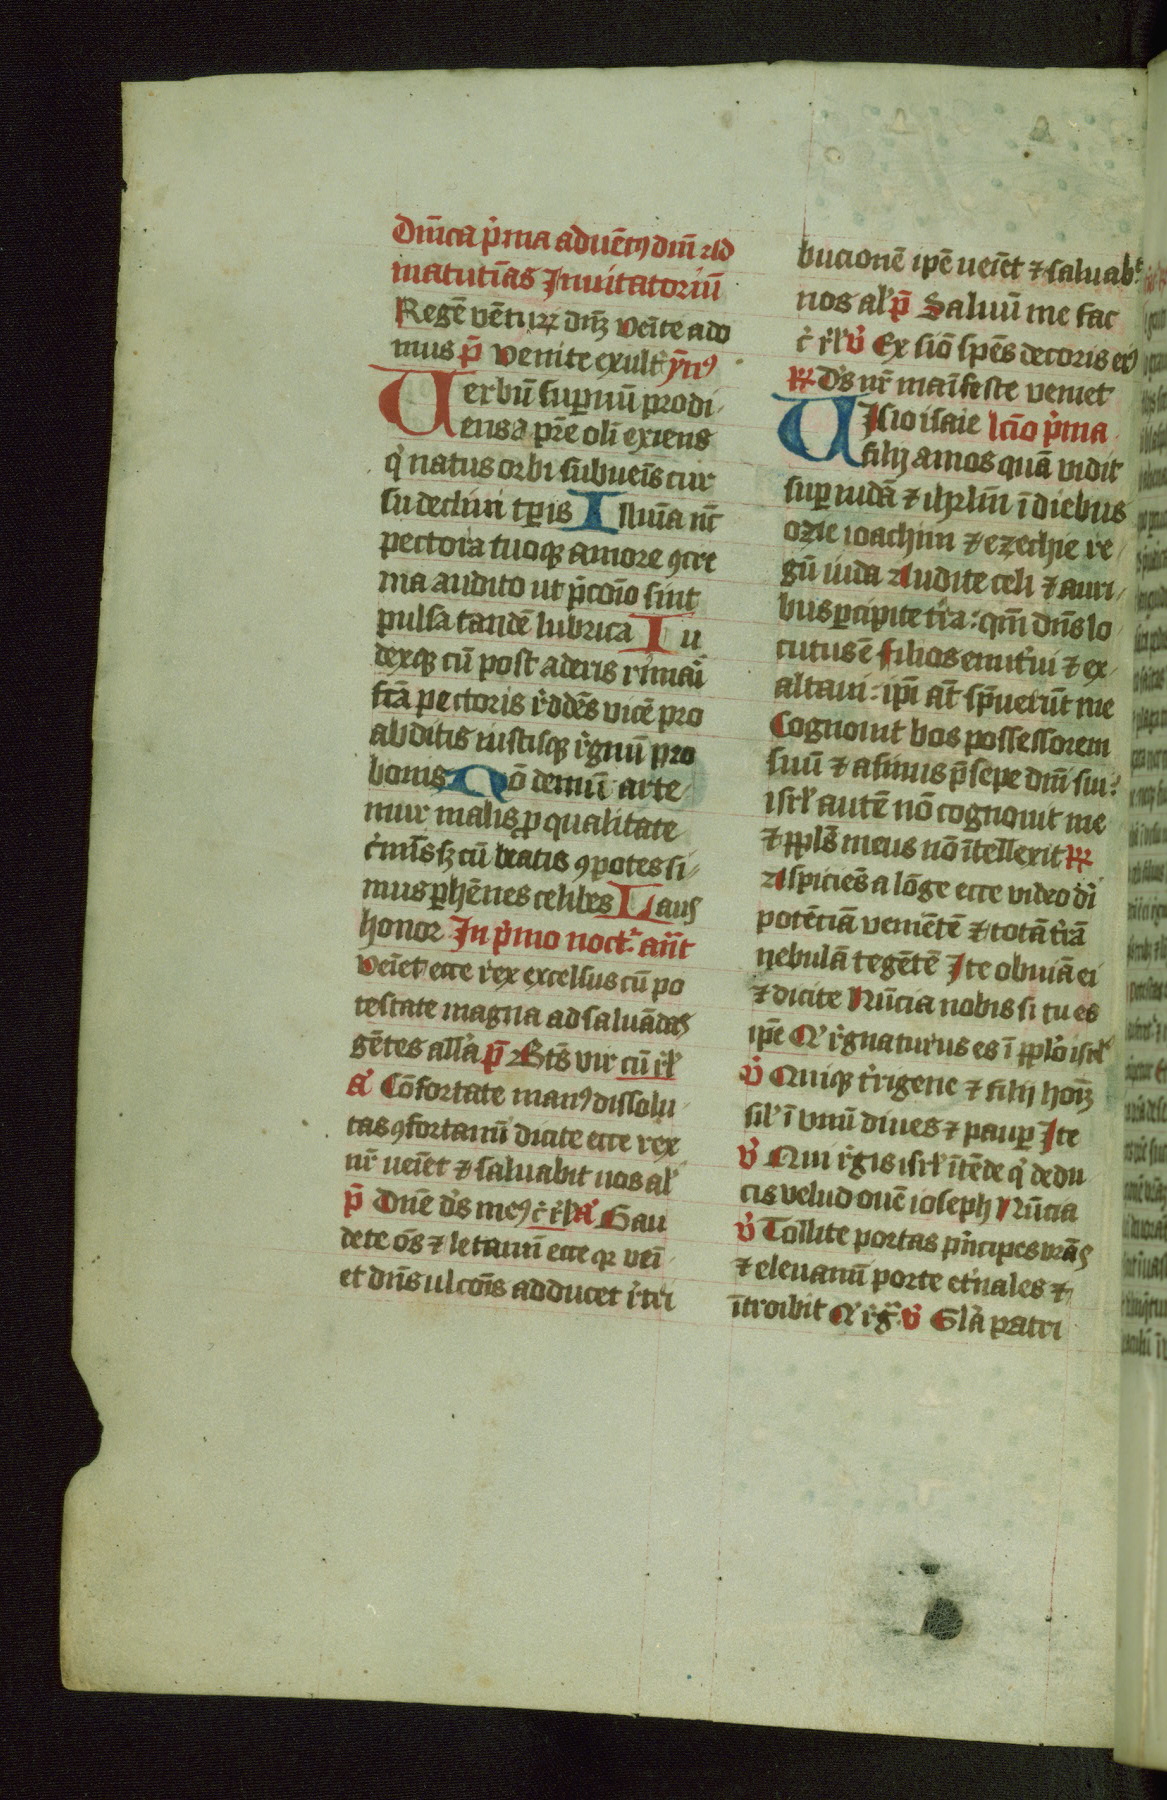 Dnĩca pˀma aduẽtꝰ dnĩ Ad
matutĩas Inuitatoriũ
Regẽ vẽturꝝ dñꝫ Veĩte ado
mus p̃ᵐ Venite exultᵉ ymꝰ
Verbũ supernũ prodi
ens a pr̃e oli exiens
qˀ natus orbi subueĩs cur
su declini tꝑis Illuĩa nũc
pectora tuoqꝫ amore ꝯcre
ma audito ut p̃cõio sint
pulsa tandẽ lubrica Iu
dexqꝫ cũ post aderis rimaĩ
fcã pectoris rˀddẽs vicẽ pro
abditis iustisqꝫ rˀgnũ pro
bonis Nõ demũ arte
mur malis ꝓ qualitate
cˀmĩs sꝫ cũ beatis ꝯpotes si
mus ꝑhẽnes celibes Laus
honor In pˀmo noctˀ añt
Veĩet ecce rex excelsus cũ po
testate magna ad saluãdas
gẽtes allˀa p̃ Bt̃s vir cũ rˀlˀ
aˀ Cõfortate manꝰ dissolu
tas ꝯfortamĩ dicite ecce rex
nr̃ ueĩet ⁊ saluabit uos alˀ
p̃ Dñe dˀs meꝰ cˀ rˀlˀ aˀ Gau
dete õs ⁊ letamĩ ecce qꝛ veĩ
et dñs ulcõis adducet rˀtri
bucionẽ ipẽ ueĩet ⁊ saluabᵗ
nos alˀ p̃ Saluũ me fac
cˀ rˀlˀ v̾ Ex siõ spẽs decoris eiꝰ
℟ Dˀs nr̃ maĩfeste veniet
VIsio isaie lcĩo pˀma
filij amos quã vidit
suꝑ iudã ⁊ ihrlm̃ ĩ diebus
ozie ioachim ⁊ ezechie re
gũ iuda Audite celi ⁊ auri
bus ꝑcipite tr̃a: qm̃ dñs lo
cutus ẽ filios enutˀui ⁊ ex
altaui: ipĩ at̃ sp̃uerũt me
Cognouit bos possessorem
suũ ⁊ asinus p̃sepe dnĩ sui:
isrlˀ autẽ nõ cognouit me
⁊ pplˀs meus nõ ĩtellexit ℟
Aspiciẽs a lõge ecce video di
potẽciã veniẽtẽ ⁊ totã tˀrã
nebulã tegẽtẽ Ite obuiã ei
⁊ dicite Nũcia nobis si tu es
ipẽ Qˀ rˀgnaturus es ĩ pplˀo isrlˀ
v̾ Quiqꝫ tˀrigene ⁊ filij hoĩꝫ
silˀ ĩ vnũ diues ⁊ pauꝑ Ite
v̾ Qui rˀgis isrlˀ ĩtẽde qˀ dedu
cis velud ouẽ ioseph Nũcia
v̾ Tollite portas pˀncipes vrãs
⁊ eleuamĩ porte etˀnales ⁊
ĩtroibit Qˀ rˀgᵃ v̾ Glˀa patri